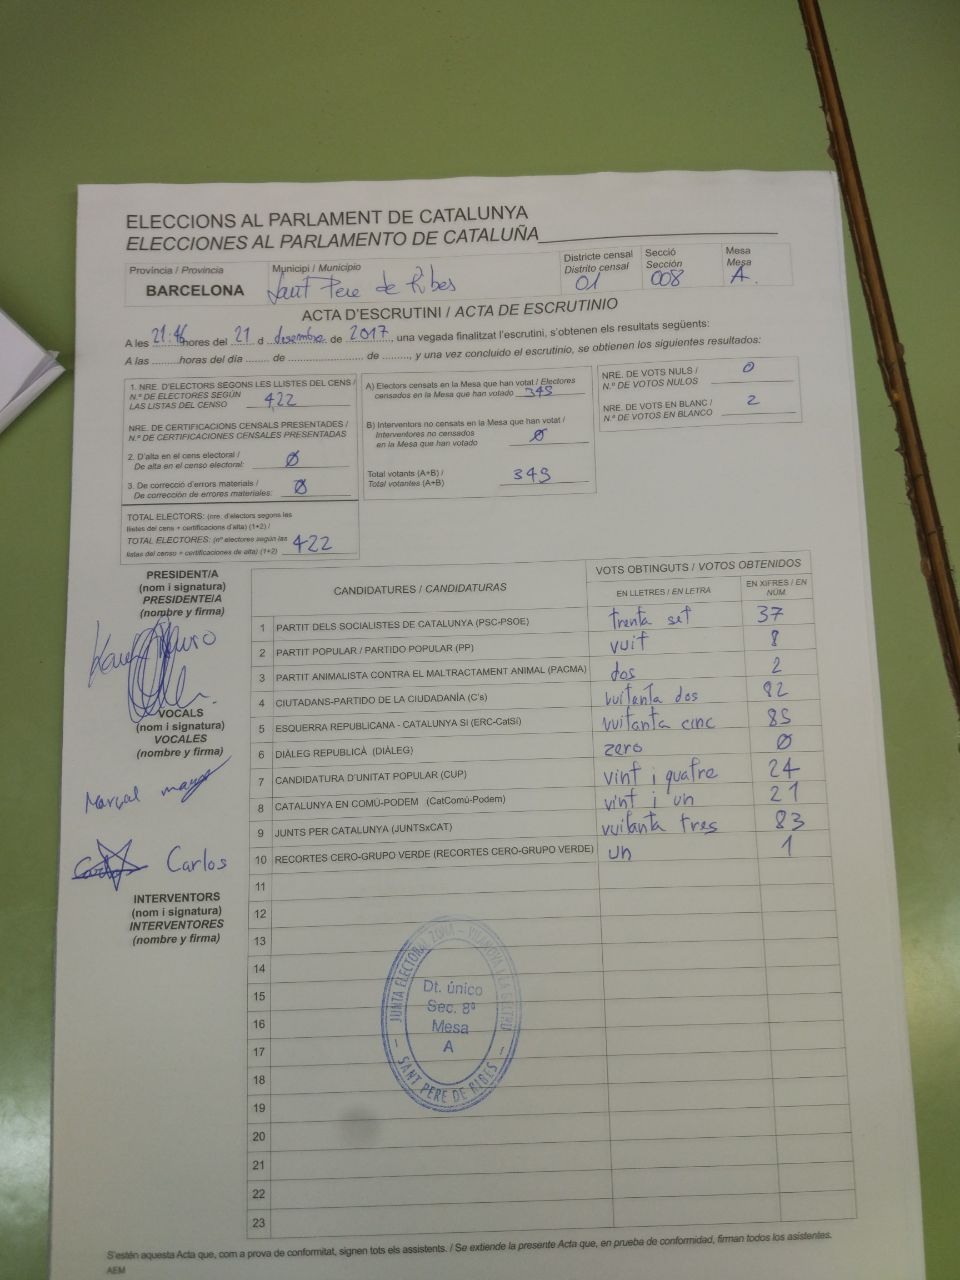 ELECCIONS AL PARLAMENT DE CATALUNYA
ELECCIONES AL PARLAMENTO DE CATALUÑA
Província / Provincia
BARCELONA
Municipi / Municipio
Sant Pere de Ribes
Districte censal
Distrito censal
01
Secció
Sección
008
Mesa
Mesa
A.
ACTA D'ESCRUTINI / ACTA DE ESCRUTINIO
A les 21:46 hores del 21 d desembre de 2017, una vegada finalitzat l'escrutini, s'obtenen els resultats següents:
A las ..........horas del día ........ de ........................ de ........., y una vez concluido el escrutinio, se obtienen los siguientes resultados:
1. NRE. D'ELECTORS SEGONS LES LLISTES DEL CENS /
N.º DE ELECTORES SEGÚN
LAS LISTAS DEL CENSO 422
NRE. DE CERTIFICACIONS CENSALS PRESENTADES /
N.º DE CERTIFICACIONES CENSALES PRESENTADAS
2. D'alta en el cens electoral /
De alta en el censo electoral: Ø
3. De correcció d'errors materials /
De corrección de errores materiales: Ø
TOTAL ELECTORS: (nre. d'electors segons les
llistes del cens + certificacions d'alta) (1+2) /
TOTAL ELECTORES: (nº electores según las
listas del censo + certificaciones de alta) (1+2) 422
A) Electors censats en la Mesa que han votat / Electores
censados en la Mesa que han votado 345
B) Interventors no censats en la Mesa que han votat /
Interventores no censados
en la Mesa que han votado Ø
Total votants (A+B) /
Total votantes (A+B) 345
NRE. DE VOTS NULS /
N.º DE VOTOS NULOS 0
NRE. DE VOTS EN BLANC /
N.º DE VOTOS EN BLANCO 2
PRESIDENT/A
(nom i signatura)
PRESIDENTE/A
(nombre y firma)
VOCALS
(nom i signatura)
VOCALES
(nombre y firma)
Marçal
Carlos
INTERVENTORS
(nom i signatura)
INTERVENTORES
(nombre y firma)
CANDIDATURES / CANDIDATURAS
VOTS OBTINGUTS / VOTOS OBTENIDOS
EN LLETRES / EN LETRA
EN XIFRES / EN NÚM.
1 PARTIT DELS SOCIALISTES DE CATALUNYA (PSC-PSOE) trenta set 37
2 PARTIT POPULAR / PARTIDO POPULAR (PP) vuit 8
3 PARTIT ANIMALISTA CONTRA EL MALTRACTAMENT ANIMAL (PACMA) dos 2
4 CIUTADANS-PARTIDO DE LA CIUDADANÍA (C's) vuitanta dos 82
5 ESQUERRA REPUBLICANA - CATALUNYA SÍ (ERC-CatSí) vuitanta cinc 85
6 DIÀLEG REPUBLICÀ (DIÀLEG) zero Ø
7 CANDIDATURA D'UNITAT POPULAR (CUP) vint i quatre 24
8 CATALUNYA EN COMÚ-PODEM (CatComú-Podem) vint i un 21
9 JUNTS PER CATALUNYA (JUNTSxCAT) vuitanta tres 83
10 RECORTES CERO-GRUPO VERDE (RECORTES CERO-GRUPO VERDE) un 1
11
12
13
14
15
16
17
18
19
20
21
22
23
JUNTA ELECTORAL ZONA - VILANOVA I LA GELTRÚ
Dt. único
Sec. 8ª
Mesa
A
- SANT PERE DE RIBES -
S'estén aquesta Acta que, com a prova de conformitat, signen tots els assistents. / Se extiende la presente Acta que, en prueba de conformidad, firman todos los asistentes.
AEM